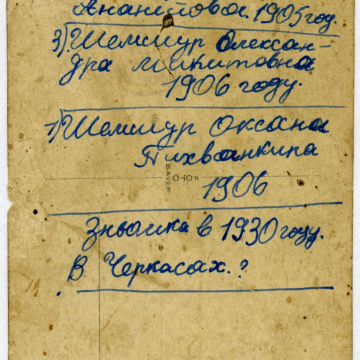 Ананитовa. 1905 год.
3) Шемшур Олексан-
дра Микитовна
1906 году.
1) Шемшур Оксана
Тихванкина
1906
Зньомка в 1930 году.
В Черкасах.?